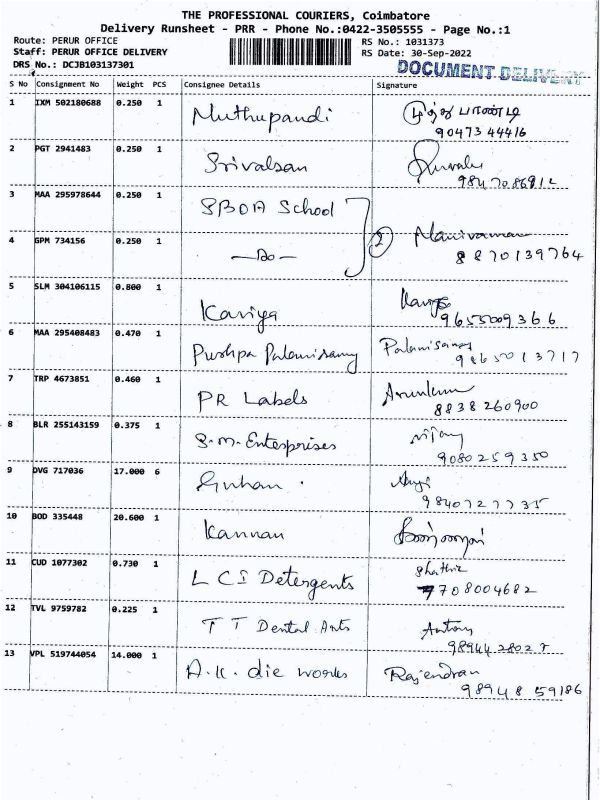 THE PROFESSIONAL COURIERS, Coimbatore
Delivery Runsheet - PRR - Phone No.:0422-3505555 - Page No.:1
Route: PERUR OFFICE
RS No.: 1031373
Staff: PERUR OFFICE DELIVERY
RS Date: 30-Sep-2022
DRS No.: DCJB103137301
DOCUMENT DELIVERY
S No Consignment No Weight PCS Consignee Details Signature
1 IXM 502180688 0.250 1 Muthupandi முத்து பாண்டி
90473 44416
2 PGT 2941483 0.250 1 Srivalsan
9847086912
3 MAA 295978644 0.250 1 SBOA School
4 GPM 734156 0.250 1 —Do— 2 Manivannan
8870139764
5 SLM 304106115 0.800 1 Kaviya Kaviya
9655009366
6 MAA 295408483 0.470 1 Pushpa Palanisamy Palanisamy
9865013717
7 TRP 4673851 0.460 1 PR Labels Arunkumar
8838260900
8 BLR 255143159 0.375 1 S.M. Enterprises Vijay
9080259350
9 DVG 717036 17.000 6 Guhan .
9840727735
10 BOD 335448 20.600 1 Kannan
11 CUD 1077302 0.730 1 LCS Detergents
7708004682
12 TVL 9759782 0.225 1 TT Dental Arts Antony
13 VPL 519744054 14.000 1 A.K. die works Rajendran
98948 59186